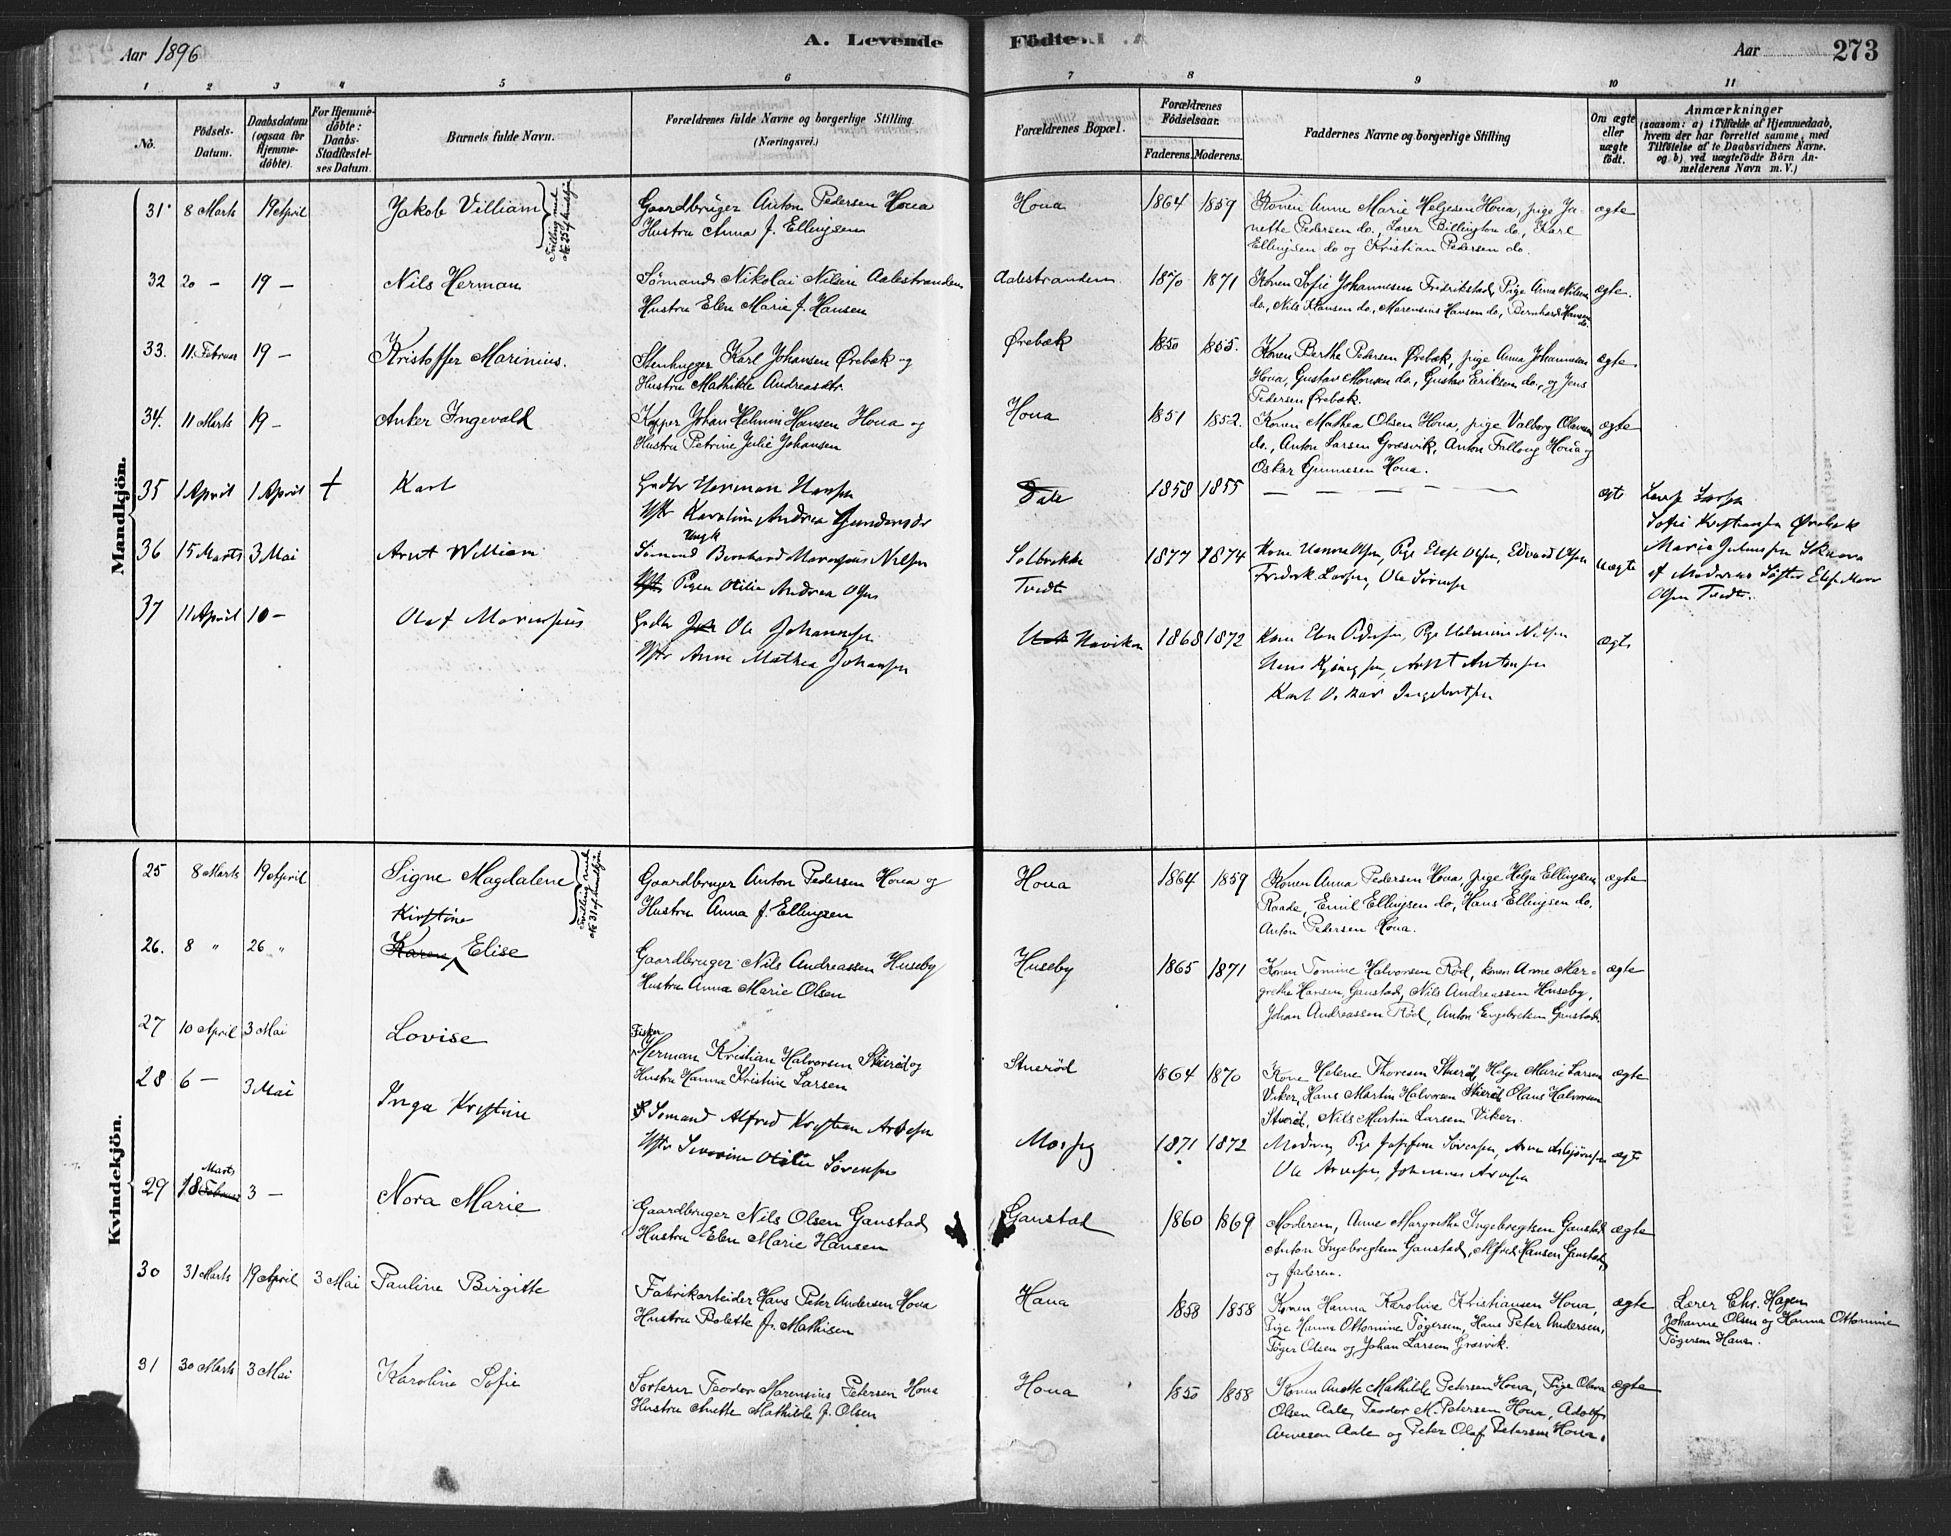 Aar 1896
A. Levende Födte.
Aar
273
1 2 3 4 5 6 7 8 9 10 11
No.
Födsels-Datum.
Daabsdatum (ogsaa for Hjemme-döbte).
For Hjemme-döbte: Daabs-Stadfæstel-ses Datum.
Barnets fulde Navn.
Forældrenes fulde Navne og borgerlige Stilling (Næringsvei.)
Forældrenes Bopæl.
Forældrenes Födselsaar.
Faderens. Moderens.
Faddernes Navne og borgerlige Stilling
Om ægte eller uægte födt.
Anmærkninger
(saasom: a) i Tilfælde af Hjemmedaab, hvem der har forrettet samme, med Tilföielse af to Daabsvidners Navne. og b) ved uægtefödte Börn An-melderens Navn m. V.)
Mandkjön.
31 8 Marts 19 April Jakob Villiam
Tvilling med No 25 af kvindekjön
Gaardbruger Anton Pedersen Houa
Hustru Anna f. Ellingsen
Houa 1864 1859
Konen Anne Marie Helgesen Houa, pige Ja-
nette Pedersen do., Lærer Billington do, Karl
Ellingsen do og Kristian Pedersen do.
ægte
32 20 - 19 - Nils Herman
Sømand Nikolai Nilsen Aalestranden
Hustru Elen Marie f. Hansen
Aalestranden 1870 1871
Konen Sofie Johannesen Fridrikstad, Pige Anna Nilsen
do, Nils Hansen do, Marensius Hansen do, Bernhard Hansen do.
ægte.
33. 11 Februar 19 - Kristoffer Marinius.
Stenhugger Karl Johansen Ørebæk og
Hustru Mathilde Andreasdtr.
Ørebæk 1850 1855.
Konen Berthe Pedersen Ørebæk, pige Anna Johannesen
Houa, Gustav Monsen do., Gustav Eriksen do., og Jens
Pedersen Ørebæk.
ægte
34. 11 Marts 19 - Anker Ingevald
Johan Helmin Hansen Houa og
Hustru Petrine Julie Johansen
Houa 1851 1852.
Konen Mathea Olsen Houa, pige Valborg Olavesen
do., Anton Larsen Græsvik, Anton Fallong Houa og
Oskar Gunnesen Houa.
ægte
35 1 April 1 April + Karl
Gudbr Herman Hansen
Hstr Karoline Andrea Gundersdr
Dale 1858 1855
— — — — —
ægte
Sofie Kristiansen Ørebæk
36 15 Marts 3 Mai Arnt William
Ungk
Sømand Bernhard Marensius Nilsen
Pigen Otilie Andrea Olsen
Solbrekke
Tvedte
1877 1874
Kone Hanna Olsen, Pige Elise Olsen, Edvard Olsen
Fredrik Larsen, Ole Sørensen
uægte
af Moderens Søster Elise Marie
Olsen Tvedte.
37 11 April 10 - Olaf Marensius
Gudbr Ole Johannesen
Hstr Anne Mathea Johansen
Haviken 1868 1872
Kone Elen Pedersen, Pige Helmine Nilsen
Arnt Antonsen
Karl Oskar Ingebretsen
ægte
Kvindekjön.
25 8 Marts 19 April Signe Magdalene
Tvilling med No 31 af mandkjön
Gaardbruger Anton Pedersen Houa og
Hustru Anna f. Ellingsen
Houa 1864 1859
Konen Anna Pedersen Houa, pige Helga Ellingsen
Raade, Emil Ellingsen do, Hans Ellingsen do.
Anton Pedersen Houa.
ægte
26. 8 " 26 " Kirstine
Karen Elise
Gaardbruger Nils Andreassen Huseby
Hustru Anna Marie Olsen
Huseby 1865 1871
Konen Tomine Halvorsen Rød, konen Anne Mar-
grethe Hansen Ganstad, Nils Andreassen Huseby,
Johan Andreassen Rød, Anton Engebretsen Ganstad.
ægte
27 10 April 3 Mai Lovise
Fisker
Herman Kristian Halvorsen Stuerød og
Hustru Hanna Kristine Larsen
Stuerød 1864 1870
Kone Helene Thoresen Stuerød, Helga Marie Larsen
Viker, Hans Martin Halvorsen Stuerød, Olaus Halvorsen
Stuerød, Nils Martin Larsen Viker.
ægte
28 6 - 3 Mai Inga Kristine
Sømand Alfred Kristian Arvesen
Hstr Severine Otilie Sørensen
1871 1872
Moderen, Pige Josefine Sørensen, Arne Asbjørnsen
Ole Arvesen, Johannes Arvesen
ægte
29 18 Februar Marts 3 - Nora Marie
Gaardbruger Nils Olsen Ganstad
Hustru Elen Marie Hansen
Ganstad 1860 1869
Moderen, Anne Margrethe Ingebregtsen Ganstad
Anton Ingebregtsen Ganstad, Alfred Hansen Ganstad,
og faderen.
ægte
30 31 Marts 19 April 3 Mai Pauline Birgitte
Fabrikarbeider Hans Peter Andersen Houa
Hustru Bolette f. Mathisen
Houa 1858 1858
Konen Hanna Karoline Kristiansen Houa,
Pige Hanna Ottomine Tøgersen, Hans Peter Andersen,
Tøger Olsen og Johan Larsen Græsvik.
ægte
Lærer Chs. Hagem
Johanne Olsen og Hanna Ottomine
Tøgersen Houa.
31 30 Marts 3 Mai Karoline Sofie
Sorterer Teodor Marensius Petersen Houa
Hustru Anette Mathilde f. Olsen
Houa 1850 1858
Konen Anette Mathilde Petersen Houa, Pige Olava
Olsen Aale, Teodor M. Petersen Houa, Adolf
Arvesen Aale og Peter Olaf Petersen Houa.
ægte